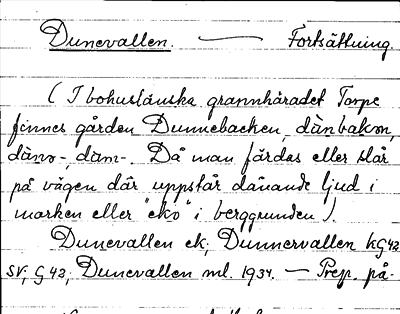 Dunevallen. — Fortsättning.
(I bohuslänska grannhäradet Torpe
finnes gården Dunnebacken, dànbakɔn,
dàno-, dàn-. Då man färdas eller står
på vägen där uppstår dånande ljud i
marken eller "eko" i berggrunden).
Dunevallen ek, Dunnervallen kG42
SV, G42, Dunevallen ml. 1934. — Prep. på.